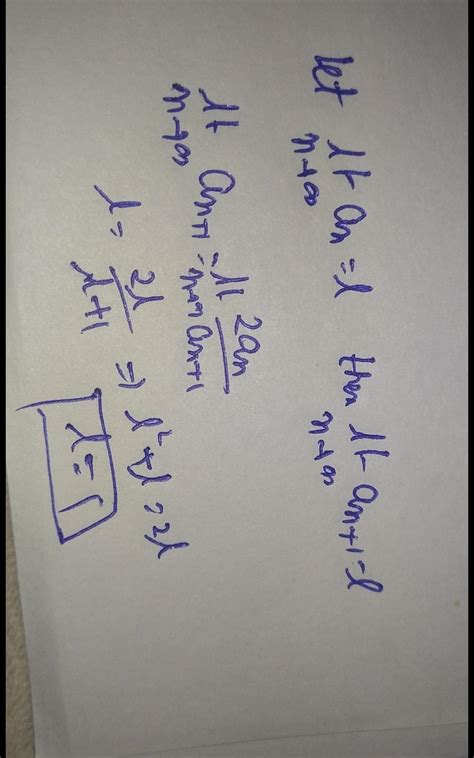 let lt n→∞ an = l then lt n→∞ an+1 = l
lt n→∞ an+1 = lt n→∞ 2an/an+1
l = 2l/l+1 ⇒ l²+l = 2l
l = 1